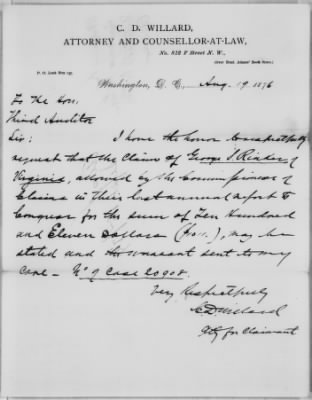 C. D. WILLARD,
ATTORNEY AND COUNSELLOR-AT-LAW,
No. 812 F Street N. W.,
P. O. Lock Box
Washington, D. C., Aug. 19. 1876
To The Hon.
Third Auditor
Sir: I have the honor to respectfully
request that the Claim of George S. Rinker of
Virginia, allowed by the Commissioners of
Claims in their last annual report to
Congress for the sum of Ten Hundred
and Eleven dollars (1011.), may be
stated and the warrant sent to my
care - No of Case 20908.
Very Respectfully
C D Willard
Atty for Claimant